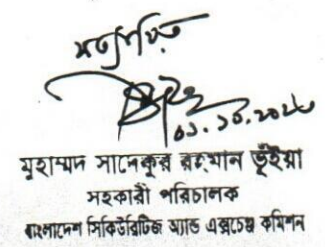 সত্যায়িত
০১.১০.২০২৫
মুহাম্মদ সাদেকুর রহমান ভূঁইয়া
সহকারী পরিচালক
বাংলাদেশ সিকিউরিটিজ অ্যান্ড এক্সচেঞ্জ কমিশন